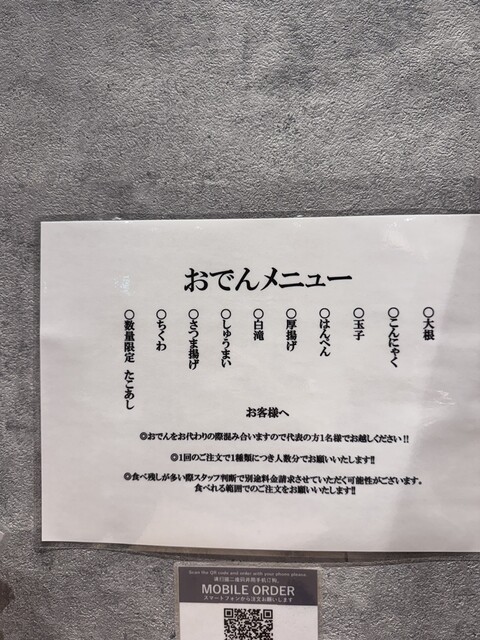 おでんメニュー
〇大根
〇こんにゃく
〇玉子
〇はんぺん
〇厚揚げ
〇白滝
〇しゅうまい
〇さつま揚げ
〇ちくわ
〇数量限定 たこあし
お客様へ
◎おでんをお代わりの際混み合いますので代表の方1名様でお越しください!!
◎1回のご注文で1種類につき人数分でお願いいたします!!
◎食べ残しが多い際スタッフ判断で別途料金請求させていただく可能性がございます。
食べれる範囲でのご注文をお願いいたします!!
Scan the QR code and order with your phone please
MOBILE ORDER
スマートフォンから注文お願いします